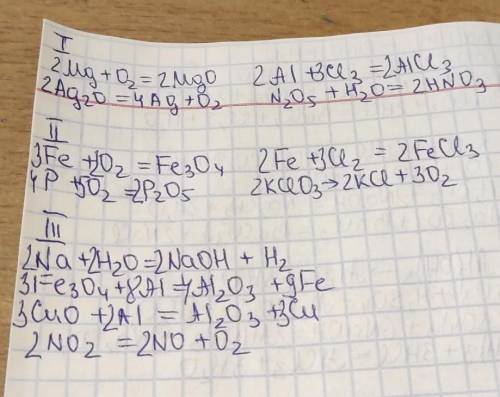 I
2Mg + O₂ = 2MgO 2Al + 3Cl₂ = 2AlCl₃
2Ag₂O = 4Ag + O₂ N₂O₅ + H₂O = 2HNO₃
II
3Fe + 2O₂ = Fe₃O₄ 2Fe + 3Cl₂ = 2FeCl₃
4P + 5O₂ = 2P₂O₅ 2KClO₃ → 2KCl + 3O₂
III
2Na + 2H₂O = 2NaOH + H₂
3Fe₃O₄ + 8Al = 4Al₂O₃ + 9Fe
3CuO + 2Al = Al₂O₃ + 3Cu
2NO₂ = 2NO + O₂